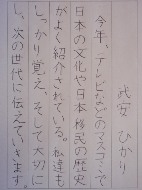 武安 ひかり
今年、テレビなどのマスコミで
日本の文化や日本移民の歴史
がよく紹介されている。私達も
しっかり覚え、そして大切に
し、次の世代に伝えていきます。